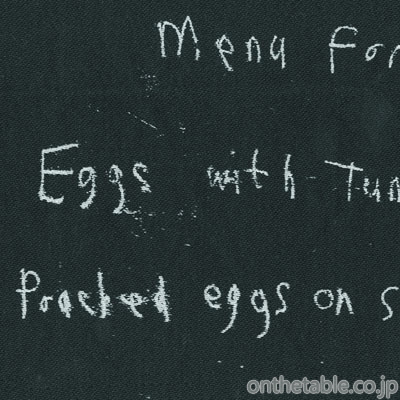 Menu For
Eggs with Tun
Poached eggs on s
onthetable.co.jp